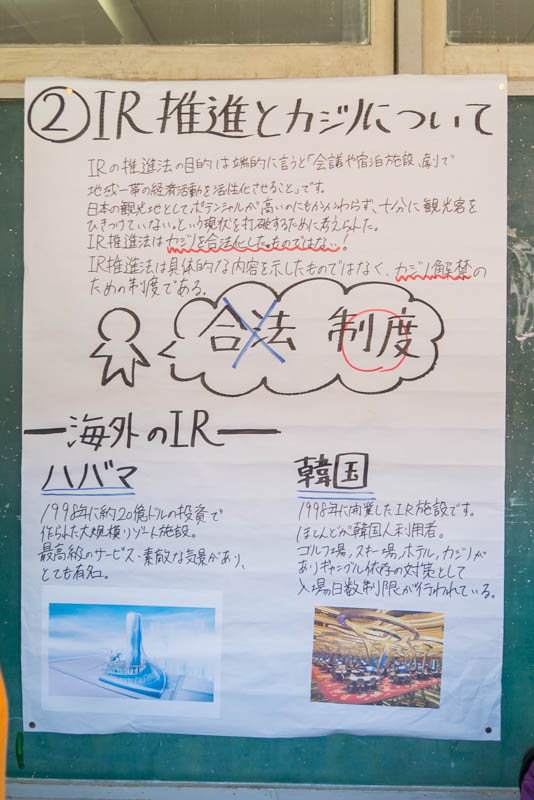 ② IR推進とカジノについて
IRの推進法の目的は端的に言うと「会議や宿泊施設、劇で
地域一帯の経済活動を活性化させること」です。
日本の観光地としてポテンシャルが高いのにもかかわらず、十分に観光客を
ひきつけていない、という現状を打破するために考えられた。
IR推進法はカジノを合法化したものではない!
IR推進法は具体的な内容を示したものではなく、カジノ解禁の
ための制度である。
合法 制度
海外のIR
ハバマ
1998年に約20億ドルの投資で
作られた大規模リゾート施設。
最高級のサービス・素敵な気景があり、
とても有名。
韓国
1998年に開業したIR施設です。
ほとんどが韓国人利用者。
ゴルフ場、スキー場、ホテル、カジノが
ありギャンブル依存の対策として
入場の日数制限が行われている。